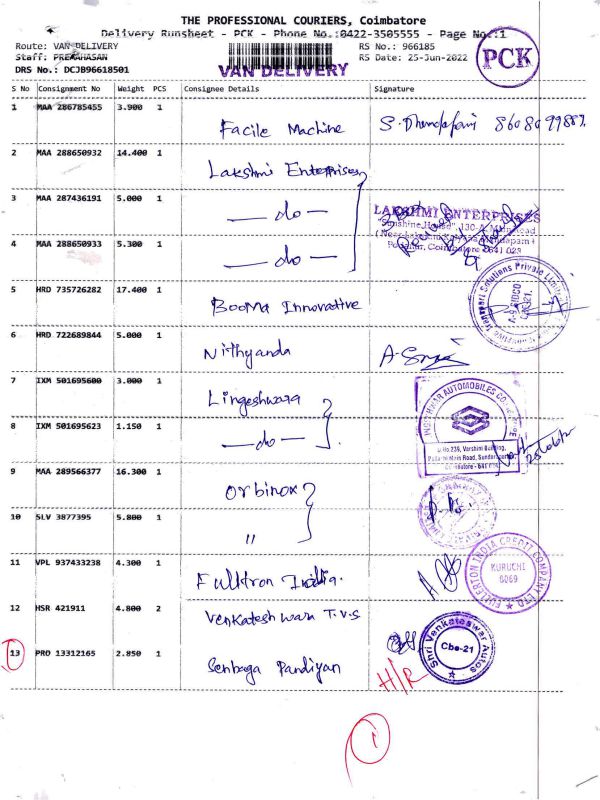 THE PROFESSIONAL COURIERS, Coimbatore
Delivery Runsheet - PCK - Phone No.:0422-3505555 - Page No.:1
Route: VAN DELIVERY
RS No.: 966185
Staff: PREMAHASAN
RS Date: 25-Jun-2022
DRS No.: DCJB96618501
VAN DELIVERY
PCK
S No Consignment No Weight PCS Consignee Details Signature
1 MAA 286785455 3.900 1 Facile Machine
2 MAA 288650932 14.400 1 Lakshmi Enterprises
3 MAA 287436191 5.000 1 — do —
LAKSHMI ENTERPRISES
"Sunshine House" 130-A,
4 MAA 288650933 5.300 1 — do —
5 HRD 735726282 17.400 1 Booma Innovative
6 HRD 722689844 5.000 1 Nithyanda
7 IXM 501695600 3.000 1 Lingeshwara
8 IXM 501695623 1.150 1 — do —
9 MAA 289566377 16.300 1 Orbinox
10 SLV 3877395 5.800 1 "
11 VPL 937433238 4.300 1 Fulltron India.
FULLERTON INDIA CREDIT COMPANY LTD.
KURUCHI
6069
12 HSR 421911 4.800 2 Venkateshwara T.V.S
Shri Venkateswar Autos
Cbe-21
13 PRO 13312165 2.850 1 Senbaga Pandiyan
H/R
1